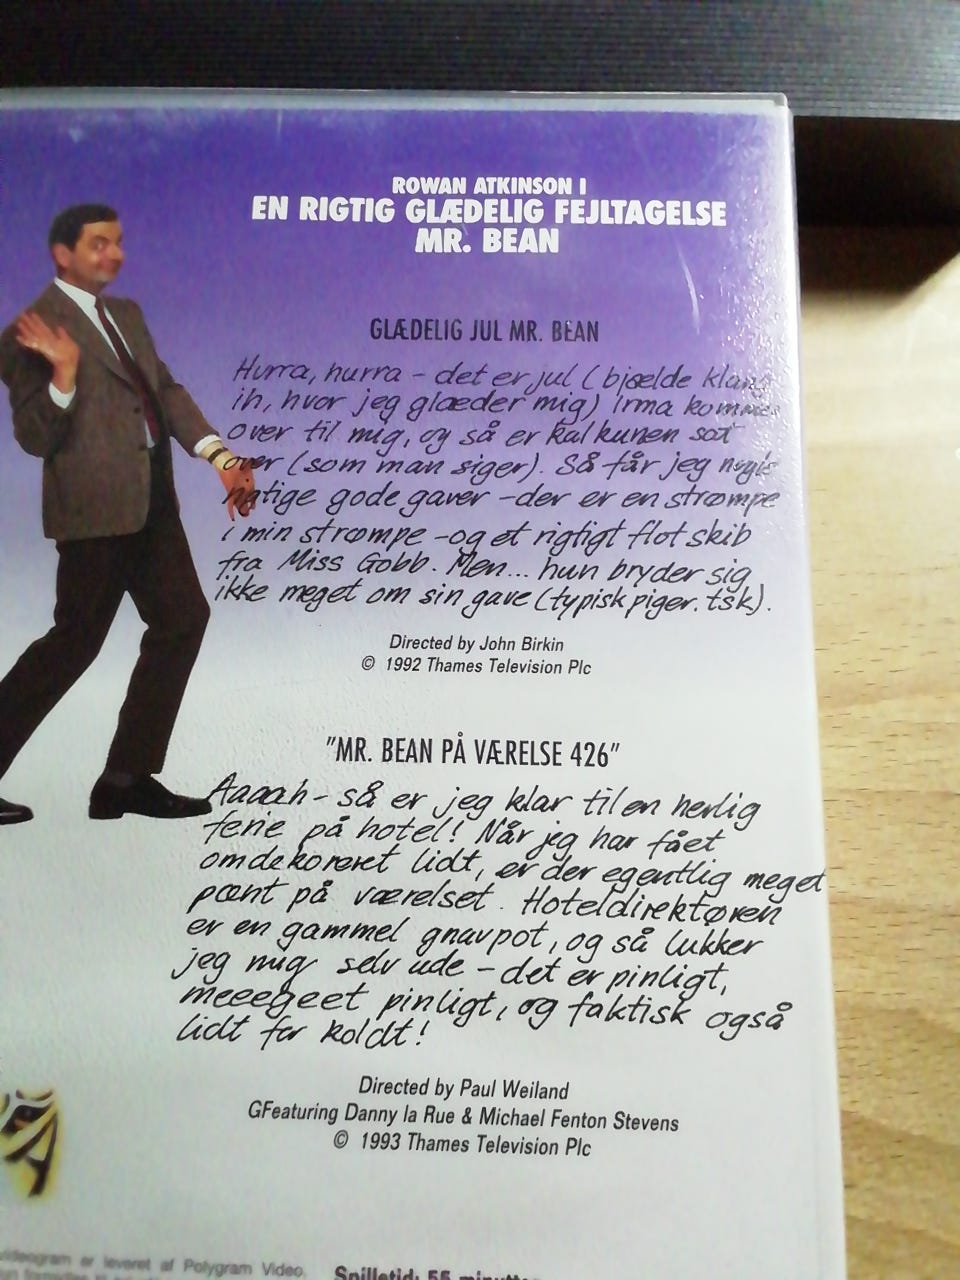 ROWAN ATKINSON I
EN RIGTIG GLÆDELIG FEJLTAGELSE
MR. BEAN
GLÆDELIG JUL MR. BEAN
Hurra, hurra - det er jul (bjælde klang
ih, hvor jeg glæder mig) Irma kommer
over til mig, og så er kalkunen sat
over (som man siger). Så får jeg nogle
rigtige gode gaver - der er en strømpe
i min strømpe - og et rigtigt flot skib
fra Miss Gobb. Men... hun bryder sig
ikke meget om sin gave (typisk piger. tsk).
Directed by John Birkin
© 1992 Thames Television Plc
"MR. BEAN PÅ VÆRELSE 426"
Aaaah - så er jeg klar til en herlig
ferie på hotel! Når jeg har fået
omdekoreret lidt, er der egentlig meget
pænt på værelset. Hoteldirektøren
er en gammel gnavpot, og så lukker
jeg mig selv ude - det er pinligt,
meeegeet pinligt, og faktisk også
lidt for koldt!
Directed by Paul Weiland
GFeaturing Danny la Rue & Michael Fenton Stevens
© 1993 Thames Television Plc
er leveret af Polygram Video.
Spilletid: 55 minutter